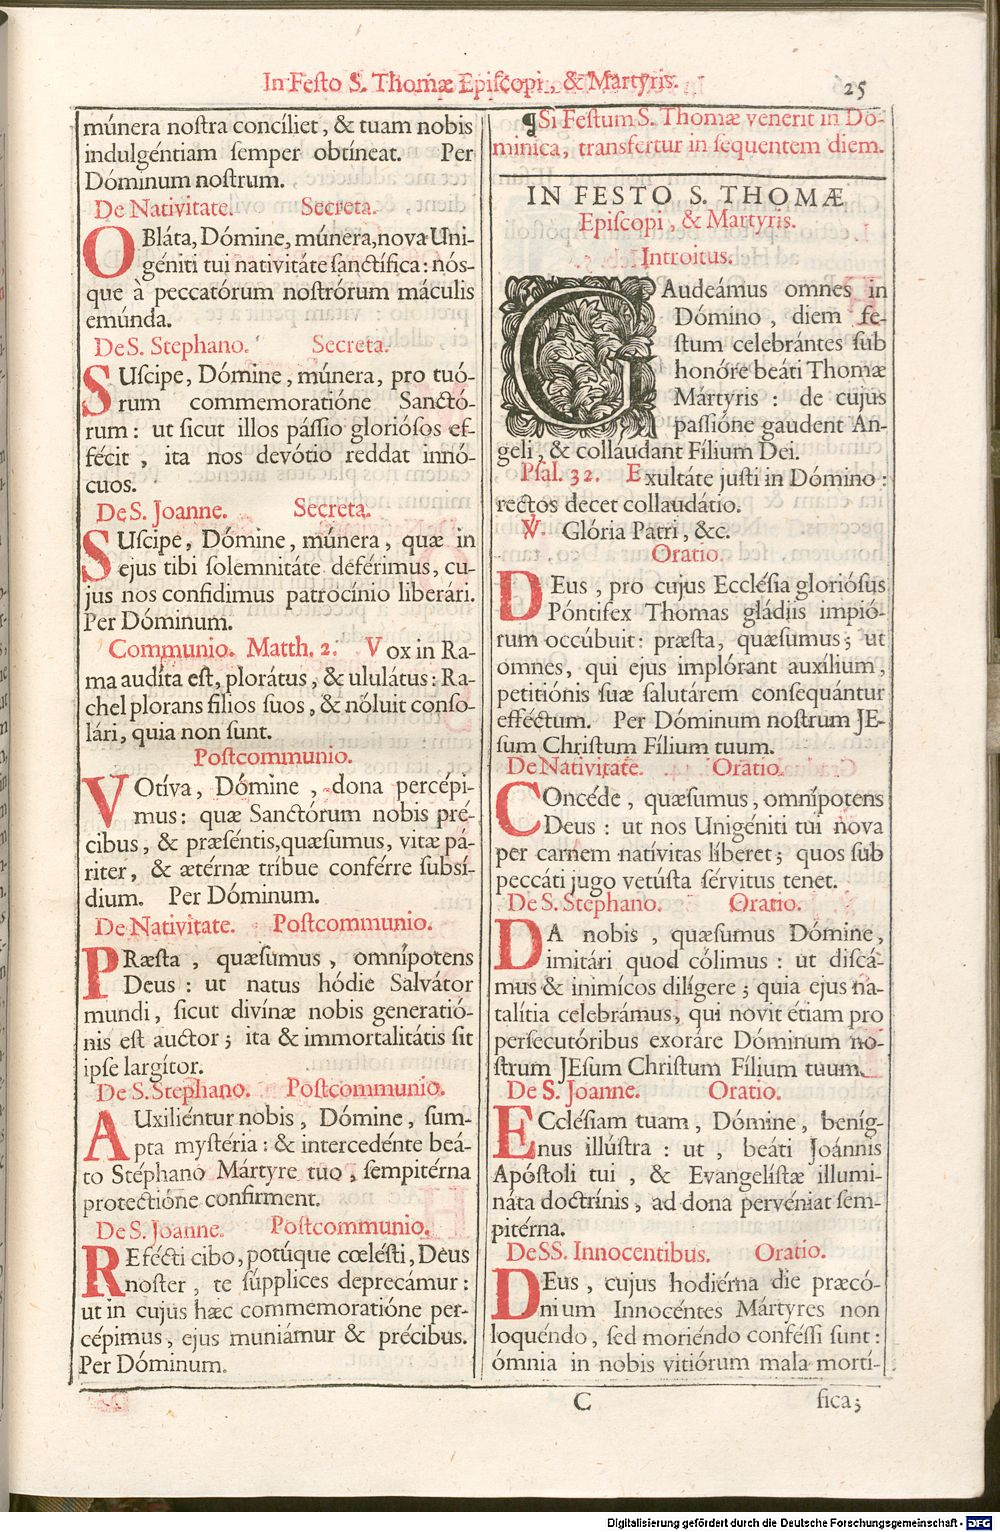 In Festo S. Thomæ Episcopi, & Martyris.
25
múnera nostra concíliet, & tuam nobis
indulgéntiam semper obtíneat. Per
Dóminum nostrum.
De Nativitate. Secreta.
OBláta, Dómine, múnera, nova Uni-
géniti tui nativitáte sanctífica: nós-
que à peccatórum nostrórum máculis
emúnda.
De S. Stephano. Secreta.
SUscipe, Dómine, múnera, pro tuó-
rum commemoratióne Sanctó-
rum: ut sicut illos pássio gloriósos ef-
fécit, ita nos devótio reddat innó-
cuos.
De S. Joanne. Secreta.
SUscipe, Dómine, múnera, quæ in
ejus tibi solemnitáte deférimus, cu-
jus nos confídimus patrocínio liberári.
Per Dóminum.
Communio. Matth. 2. Vox in Ra-
ma audíta est, plorátus, & ululátus: Ra-
chel plorans fílios suos, & nóluit conso-
lári, quia non sunt.
Postcommunio.
VOtíva, Dómine, dona percépi-
mus: quæ Sanctórum nobis pré-
cibus, & præséntis, quæsumus, vitæ pá-
riter, & ætérnæ tríbue conférre subsí-
dium. Per Dóminum.
De Nativitate. Postcommunio.
PRæsta, quæsumus, omnípotens
Deus: ut natus hódie Salvátor
mundi, sicut divínæ nobis generatió-
nis est auctor; ita & immortalitátis sit
ipse largítor.
De S. Stephano. Postcommunio.
AUxiliéntur nobis, Dómine, sum-
pta mystéria: & intercedénte beá-
to Stéphano Mártyre tuo, sempitérna
protectióne confírment.
De S. Joanne. Postcommunio.
REfécti cibo, potúque cœlésti, Deus
noster, te súpplices deprecámur:
ut in cujus hæc commemoratióne per-
cépimus, ejus muniámur & précibus.
Per Dóminum.
¶Si Festum S. Thomæ venerit in Do-
minica, transfertur in sequentem diem.
IN FESTO S. THOMÆ
Episcopi, & Martyris.
Introitus.
GAudeámus omnes in
Dómino, diem fe-
stum celebrántes sub
honóre beáti Thomæ
Mártyris: de cujus
passióne gaudent Án-
geli, & colláudant Fílium Dei.
Psal. 32. Exultáte justi in Dómino:
rectos decet collaudátio.
℣. Glória Patri, &c.
Oratio.
DEus, pro cujus Ecclésia gloriósus
Póntifex Thomas gládiis impió-
rum occúbuit: præsta, quæsumus; ut
omnes, qui ejus implórant auxílium,
petitiónis suæ salutárem consequántur
efféctum. Per Dóminum nostrum JE-
sum Christum Fílium tuum.
De Nativitate. Oratio.
COncéde, quæsumus, omnípotens
Deus: ut nos Unigéniti tui nova
per carnem natívitas líberet; quos sub
peccáti jugo vetústa sérvitus tenet.
De S. Stephano. Oratio.
DA nobis, quæsumus Dómine,
imitári quod cólimus: ut discá-
mus & inimícos dilígere; quia ejus na-
talítia celebrámus, qui novit étiam pro
persecutóribus exoráre Dóminum no-
strum JEsum Christum Fílium tuum.
De S. Joanne. Oratio.
ECclésiam tuam, Dómine, beníg-
nus illústra: ut, beáti Joánnis
Apóstoli tui, & Evangelístæ illumi-
náta doctrínis, ad dona pervéniat sem-
pitérna.
De SS. Innocentibus. Oratio.
DEus, cujus hodiérna die præcó-
nium Innocéntes Mártyres non
loquéndo, sed moriéndo conféssi sunt:
ómnia in nobis vitiórum mala mortí-
C
sica;
Digitalisierung gefördert durch die Deutsche Forschungsgemeinschaft - DFG